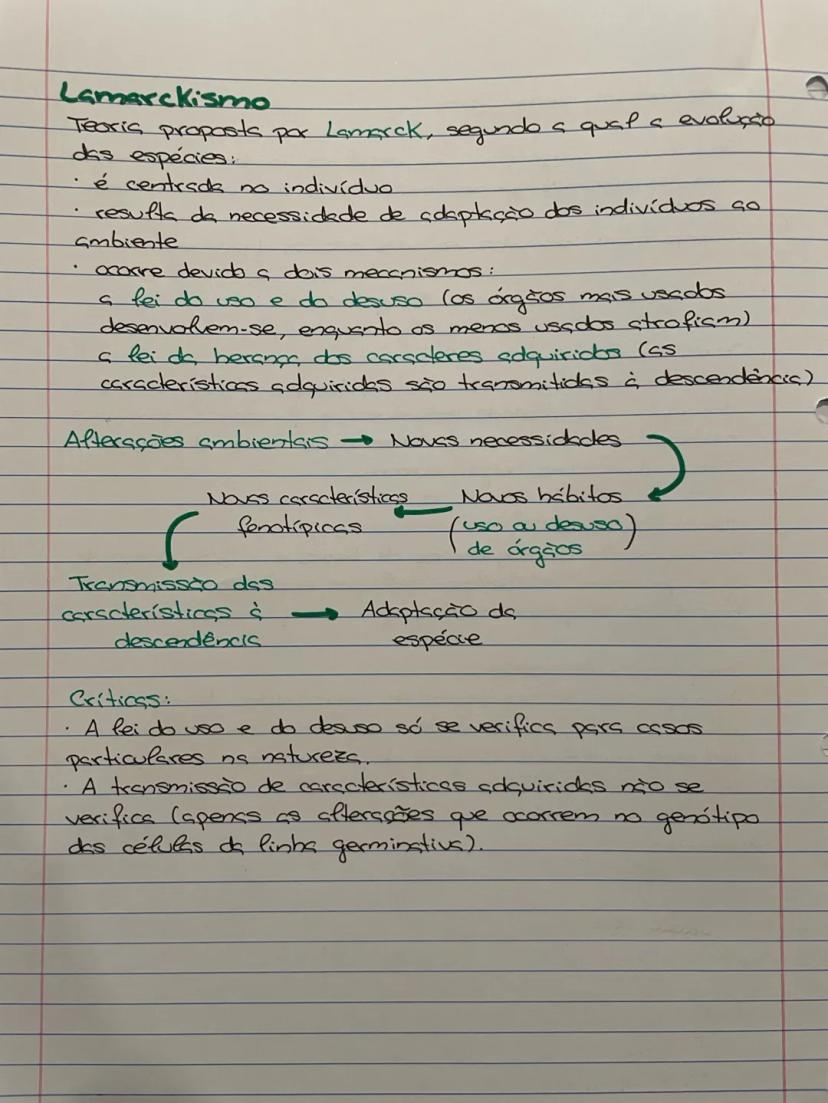 Lamarckismo
Teoria proposta por Lamarck, segundo a qual a evolução
das espécies:
· é centrada no indivíduo
· resulta da necessidade de adaptação dos indivíduos ao
ambiente
· ocorre devido a dois mecanismos:
a lei do uso e do desuso (os órgãos mais usados
desenvolvem-se, enquanto os menos usados atrofiam)
a lei da herança dos caracteres adquiridos (as
características adquiridas são transmitidas à descendência)
Alterações ambientais → Novas necessidades
Novas características ← Novos hábitos
fenotípicas (uso ou desuso)
de órgãos
Transmissão das
características à → Adaptação da
descendência espécie
Críticas:
· A lei do uso e do desuso só se verifica para casos
particulares na natureza.
· A transmissão de características adquiridas não se
verifica (apenas as alterações que ocorrem no genótipo
das células da linha germinativa).